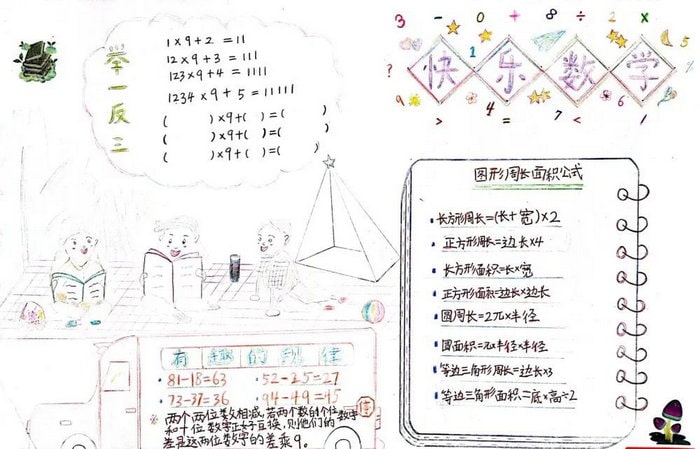 举一反三
1×9+2=11
12×9+3=111
123×9+4=1111
1234×9+5=11111
( )×9+( )=( )
( )×9+( )=( )
( )×9+( )=( )
3 - 0 + 8 ÷ 2 ×
快乐数学
1
5
?
9
6
> 4 = 7 < /
图形周长面积公式
长方形周长=(长+宽)×2
正方形周长=边长×4
长方形面积=长×宽
正方形面积=边长×边长
圆周长=2π×半径
圆面积=π×半径×半径
等边三角形周长=边长×3
等边三角形面积=底×高÷2
有趣的规律
81-18=63 52-25=27
73-37=36 94-49=45
※两个两位数相减,若两个数的个位
和十位数字正好互换,则他们的数字
差是这两位数字的差乘9。